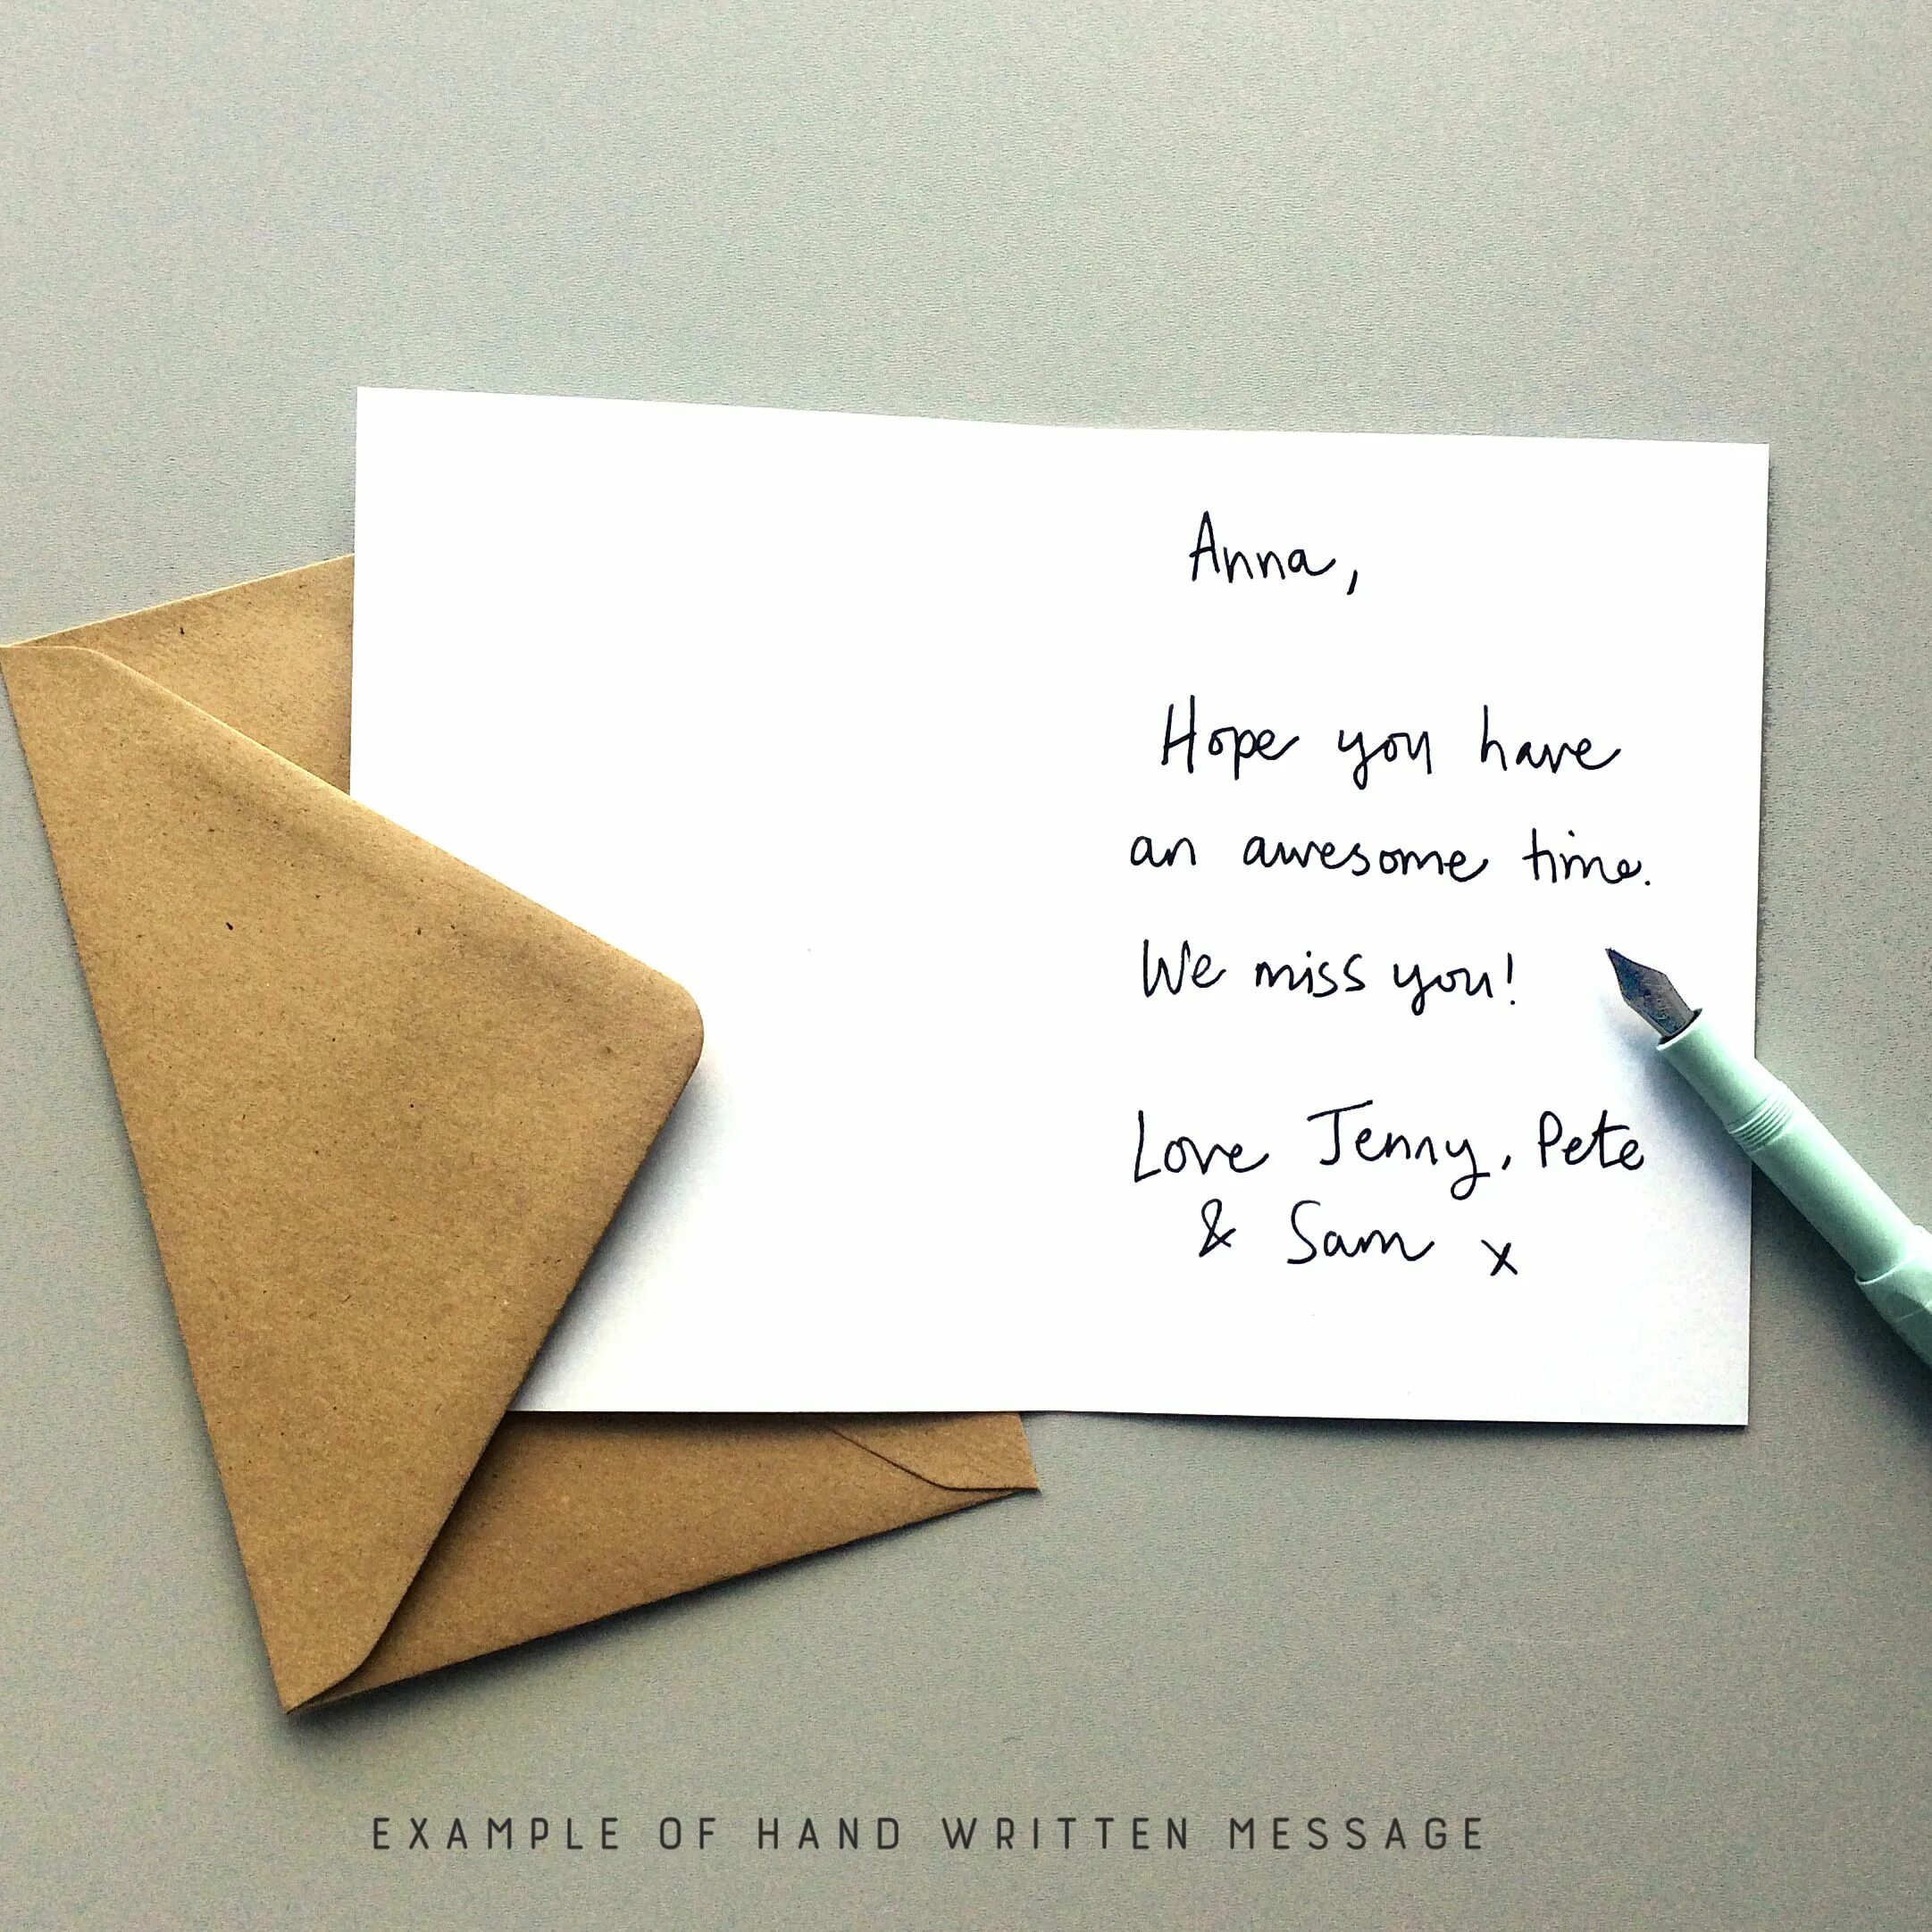 Anna,
Hope you have
an awesome time.
We miss you!
Love Jenny, Pete
& Sam x
EXAMPLE OF HAND WRITTEN MESSAGE